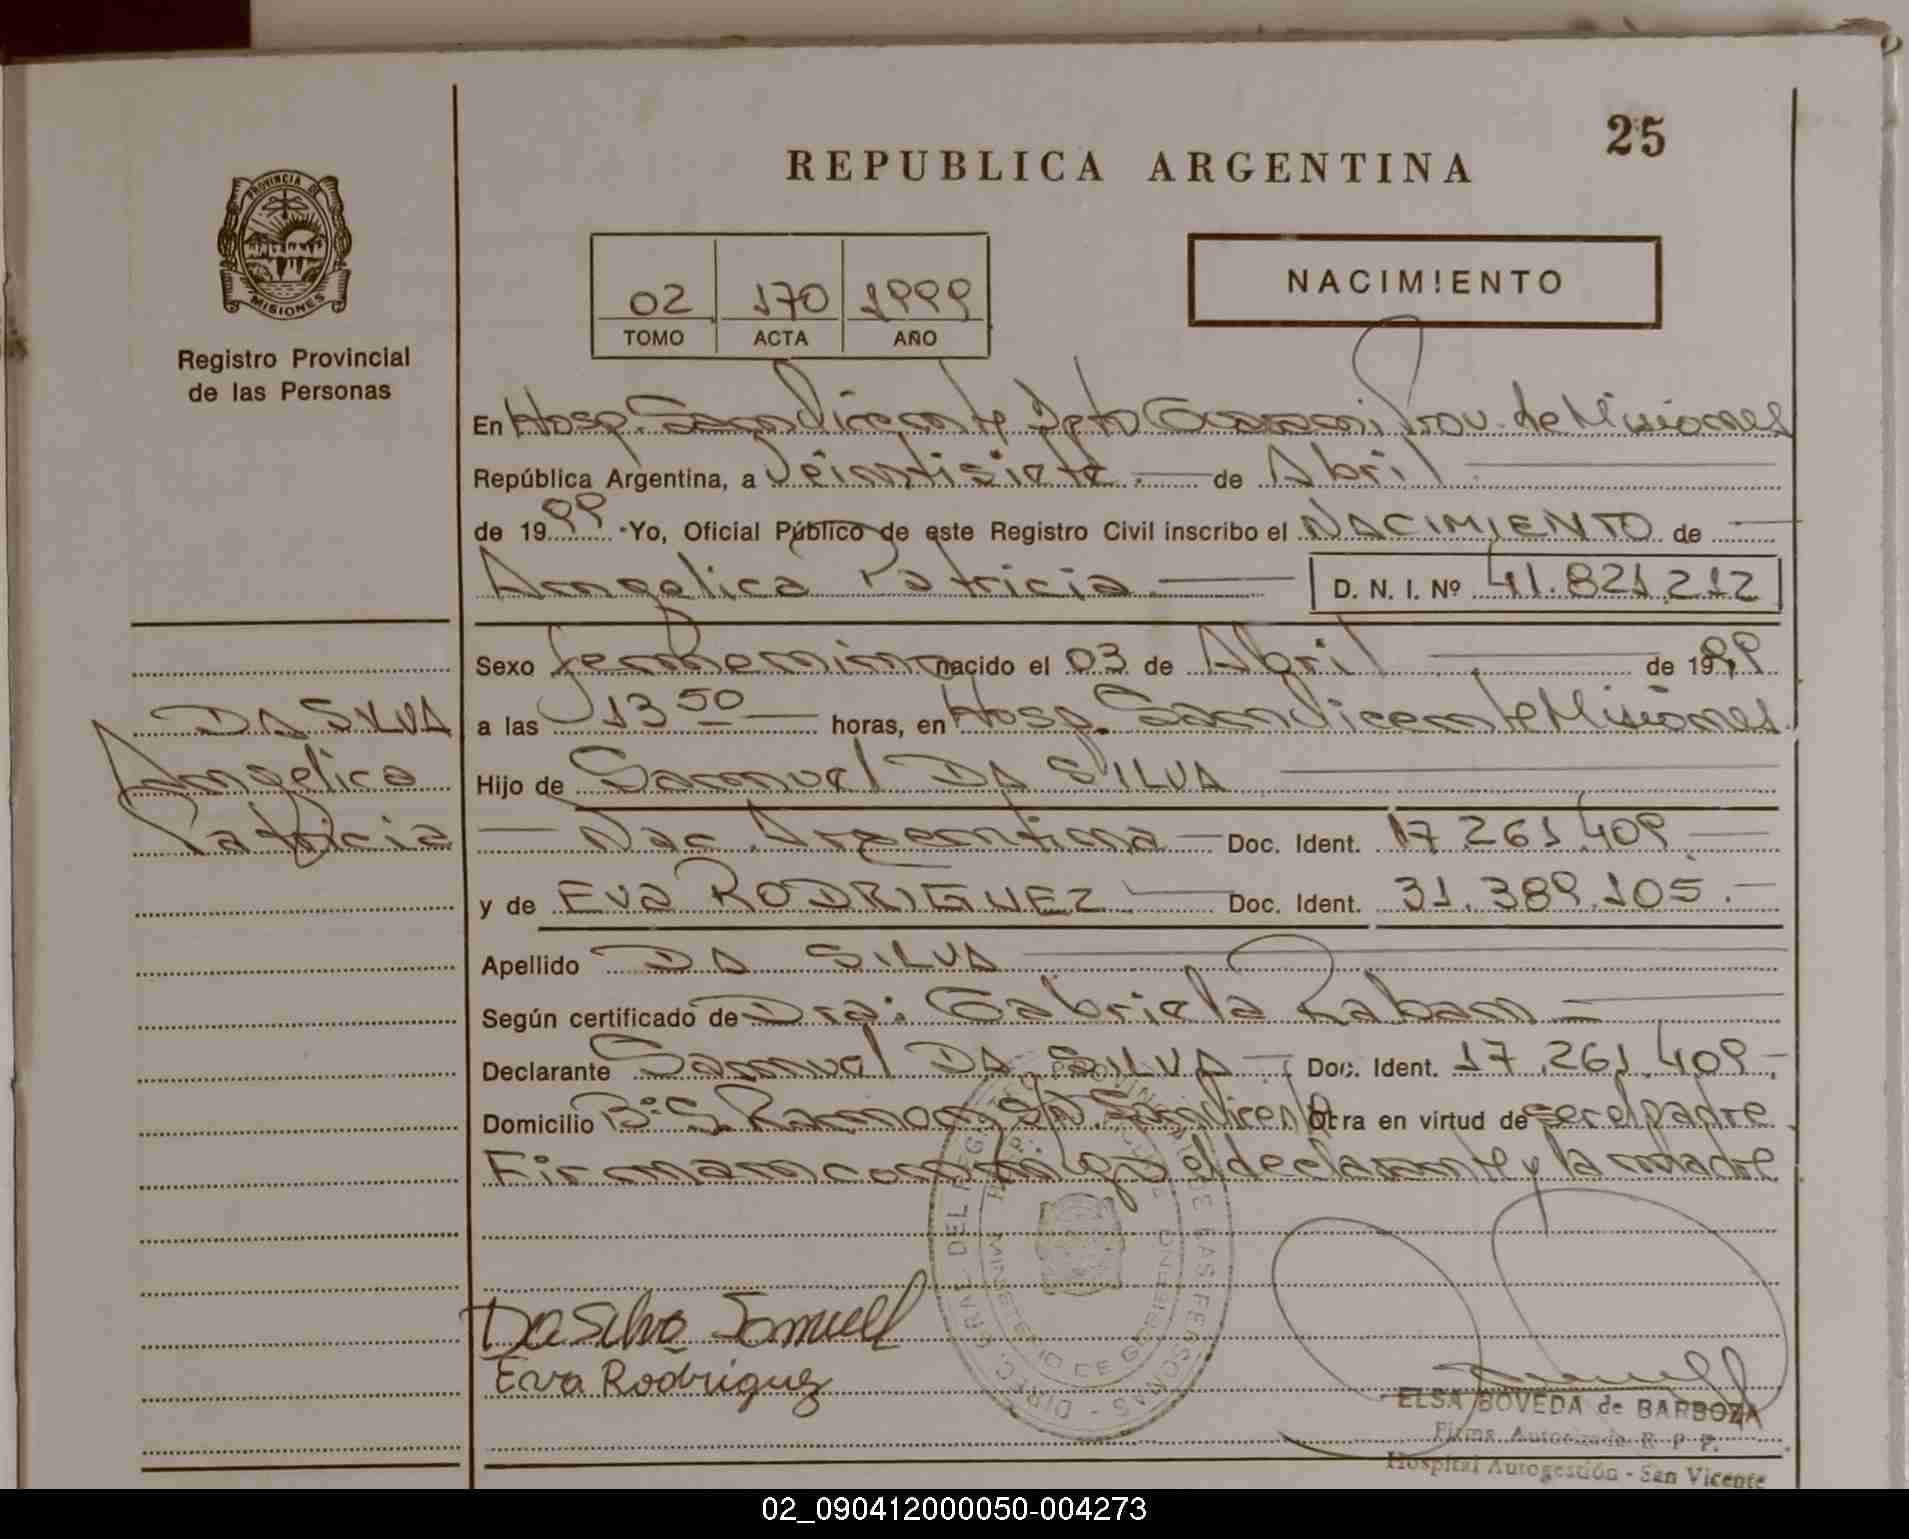 25
REPUBLICA ARGENTINA
PROVINCIA DE
MISIONES
Registro Provincial
de las Personas
02 170 1999
TOMO ACTA AÑO
NACIMIENTO
En Hosp. San Vicente Dpto Guarani Prov. de Misiones
República Argentina, a Veintisiete. de Abril
de 1999 - Yo, Oficial Público de este Registro Civil inscribo el NACIMIENTO de
Angelica Patricia D. N. I. Nº 41.821.212
Sexo femenino nacido el 03 de Abril de 1999
DA SILVA
Angelica
Patricia
a las 13 50 horas, en Hosp. San Vicente Misiones.
Hijo de Samuel DA SILVA
Nac. Argentina Doc. Ident. 17.261.409
y de Eva RODRIGUEZ Doc. Ident. 31.389.105.
Apellido DA SILVA
Según certificado de Dra: Gabriela Raban
Declarante Samuel DA SILVA Doc. Ident. 17.261.409
Domicilio Bº S. Ramon S/N San Vicente Obra en virtud de ser el padre
Firman conmigo el declarante y la madre
Da Silva Samuel
Eva Rodriguez
ELSA BOVEDA de BARBOZA
Firma Autorizada R. P. P.
Hospital Autogestión - San Vicente
02_090412000050-004273